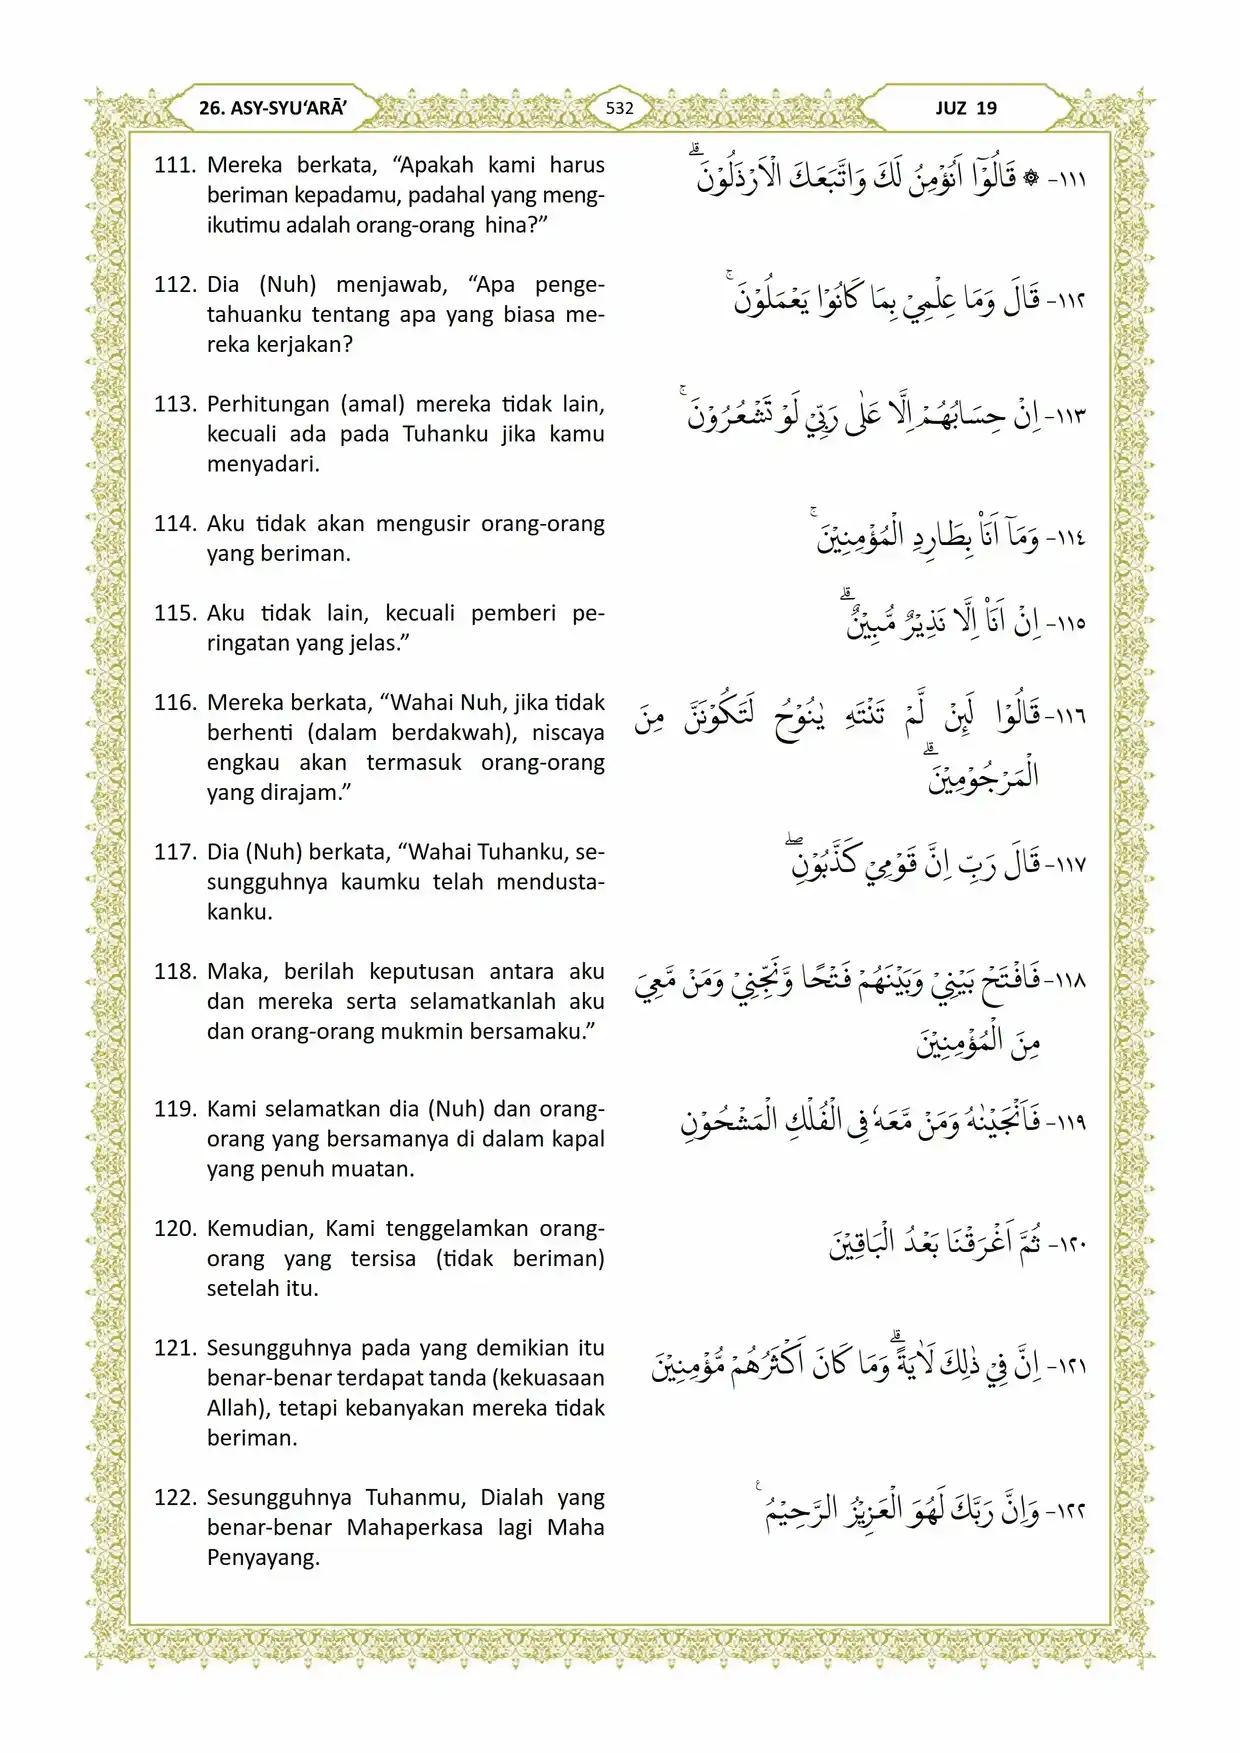 26. ASY-SYU‘ARĀ’
532
JUZ 19
111. Mereka berkata, “Apakah kami harus
beriman kepadamu, padahal yang meng-
ikutimu adalah orang-orang hina?”
١١١- ۞ قَالُوْٓا اَنُؤْمِنُ لَكَ وَاتَّبَعَكَ الْاَرْذَلُوْنَ ۗ
112. Dia (Nuh) menjawab, “Apa penge-
tahuanku tentang apa yang biasa me-
reka kerjakan?
١١٢- قَالَ وَمَا عِلْمِيْ بِمَا كَانُوْا يَعْمَلُوْنَ ۚ
113. Perhitungan (amal) mereka tidak lain,
kecuali ada pada Tuhanku jika kamu
menyadari.
١١٣- اِنْ حِسَابُهُمْ اِلَّا عَلٰى رَبِّيْ لَوْ تَشْعُرُوْنَ ۚ
114. Aku tidak akan mengusir orang-orang
yang beriman.
١١٤- وَمَآ اَنَا۠ بِطَارِدِ الْمُؤْمِنِيْنَ ۚ
115. Aku tidak lain, kecuali pemberi pe-
ringatan yang jelas.”
١١٥- اِنْ اَنَا۠ اِلَّا نَذِيْرٌ مُّبِيْنٌ ۗ
116. Mereka berkata, “Wahai Nuh, jika tidak
berhenti (dalam berdakwah), niscaya
engkau akan termasuk orang-orang
yang dirajam.”
١١٦- قَالُوْا لَىِٕنْ لَّمْ تَنْتَهِ يٰنُوْحُ لَتَكُوْنَنَّ مِنَ
الْمَرْجُوْمِيْنَ ۗ
117. Dia (Nuh) berkata, “Wahai Tuhanku, se-
sungguhnya kaumku telah mendusta-
kanku.
١١٧- قَالَ رَبِّ اِنَّ قَوْمِيْ كَذَّبُوْنِ ۖ
118. Maka, berilah keputusan antara aku
dan mereka serta selamatkanlah aku
dan orang-orang mukmin bersamaku.”
١١٨- فَافْتَحْ بَيْنِيْ وَبَيْنَهُمْ فَتْحًا وَّنَجِّنِيْ وَمَنْ مَّعِيَ
مِنَ الْمُؤْمِنِيْنَ
119. Kami selamatkan dia (Nuh) dan orang-
orang yang bersamanya di dalam kapal
yang penuh muatan.
١١٩- فَاَنْجَيْنٰهُ وَمَنْ مَّعَهٗ فِى الْفُلْكِ الْمَشْحُوْنِ
120. Kemudian, Kami tenggelamkan orang-
orang yang tersisa (tidak beriman)
setelah itu.
١٢٠- ثُمَّ اَغْرَقْنَا بَعْدُ الْبَاقِيْنَ
121. Sesungguhnya pada yang demikian itu
benar-benar terdapat tanda (kekuasaan
Allah), tetapi kebanyakan mereka tidak
beriman.
١٢١- اِنَّ فِيْ ذٰلِكَ لَاٰيَةً ۗ وَمَا كَانَ اَكْثَرُهُمْ مُّؤْمِنِيْنَ
122. Sesungguhnya Tuhanmu, Dialah yang
benar-benar Mahaperkasa lagi Maha
Penyayang.
١٢٢- وَاِنَّ رَبَّكَ لَهُوَ الْعَزِيْزُ الرَّحِيْمُ ࣖ